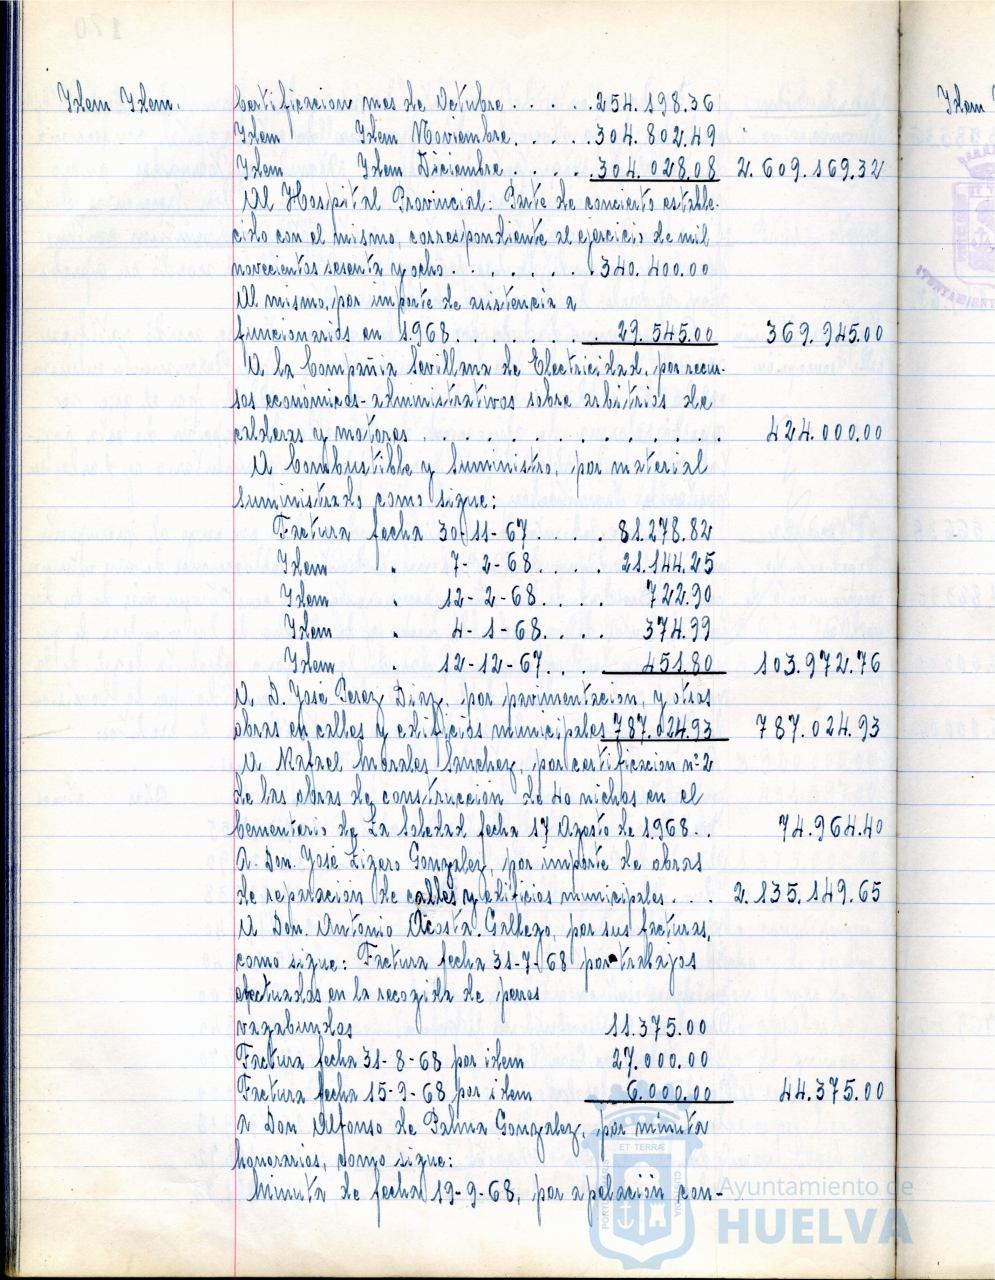 Idem Idem. Certificacion mes de Octubre . . . . . 254.198.36
Idem Idem Noviembre . . . . . 304.802.49
Idem Idem Diciembre . . . . . 304.028.08 2.609.169.32
Al Hospital Provincial: Parte de concierto estable-
cido con el mismo, correspondiente al ejercicio de mil
novecientos sesenta y ocho . . . . . . . 340.400.00
Al mismo, por importe de asistencia a
funcionarios en 1.968 . . . . . . . 29.545.00 369.945.00
A la Compañia Sevillana de Electricidad, por recur-
sos económicos-administrativos sobre arbitrios de
calderas y motores . . . . . . . . . . . 424.000.00
A Combustible y Suministro, por material
suministrado como sigue:
Factura fecha 30-11-67 . . . 81.278.82
Idem . 7-2-68 . . . 21.144.25
Idem . 12-2-68 . . . . 722.90
Idem . 4-1-68 . . . . 374.99
Idem . 12-12-67 . . . 451.80 103.972.76
A. D. José Perez Diaz, por pavimentacion, y otras
obras en calles y edificios municipales 787.024.93 787.024.93
A Rafael Morales Sanchez, por certificacion nº 2
de las obras de construccion de 40 nichos en el
Cementerio de La Soledad fecha 17 Agosto de 1.968 . . 74.964.40
A Don José Ligero Gonzalez, por importe de obras
de reparacion de calles y edificios municipales . . . . 2.135.149.65
A Don. Antonio Acosta. Gallego, por sus facturas,
como sigue: Factura fecha 31-7-68 por trabajos
efectuados en la recogida de perros
vagabundos 11.375.00
Factura fecha 31-8-68 por idem 27.000.00
Factura fecha 15-9-68 por idem 6.000.00 44.375.00
A Don Alfonso de Palma Gonzalez, por minuta
honorarios, como sigue:
Minuta de fecha 19-9-68, por apelación con-
Idem
ET TERRÆ
Ayuntamiento de
HUELVA